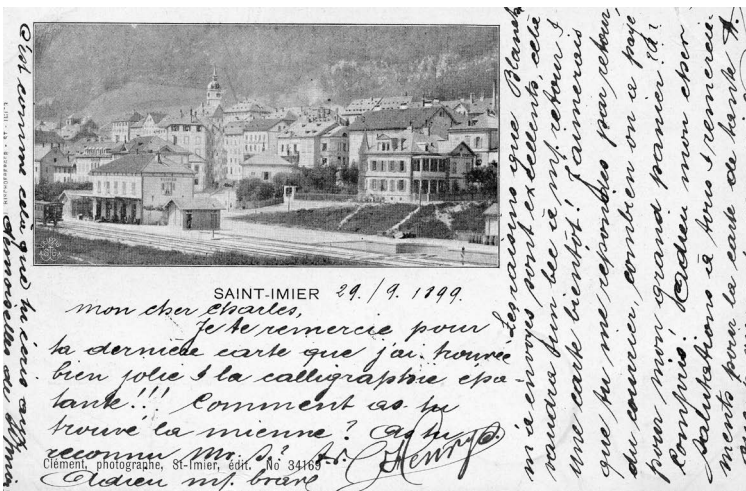 SAINT-IMIER 29./9. 1899.
mon cher Charles,
Je te remercie pour
ta dernière carte que j'ai trouvée
bien jolie & la calligraphie épa-
tante!!! Comment as-tu
trouvé la mienne? As-tu
reconnu Mr. S.?
Henry
Clément, photographe, St-Imier, édit. No 34169
Adieu brave
Les raisins que Blanche
m'a envoyés sont excellents, cela
vaudra bec à retour &
une carte bientôt! J'aimerais
que tu me répondes par retour
du courrier, combien on a payé
pour mon grand panier?
Compris! Adieu mon cher
salutations à tous & remercie-
ments pour la carte de tante
C'est comme cela que tu écris aux
demoiselles de